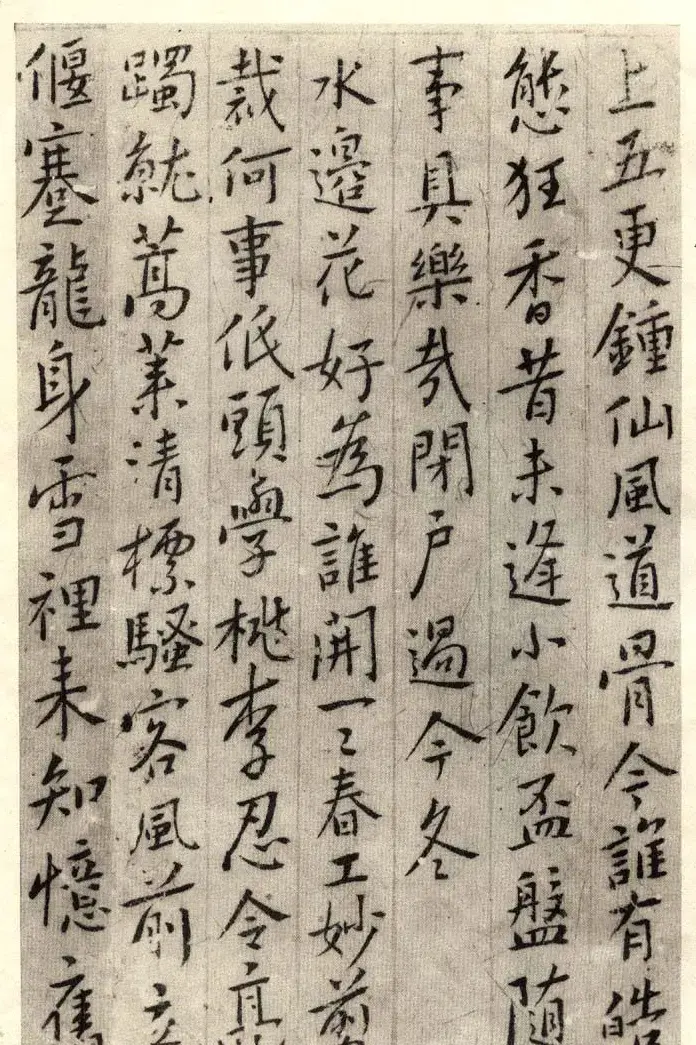 上五更鍾仙風道骨今誰有皓
態狂香昔未逢小飲盃盤隨
事具樂哉閉戶過今冬
水邊花好為誰開一〻春工妙剪
裁何事低頭學桃李忍令
躅就蒿萊清標騷客風前立
偃蹇龍身雪裡来知憶舊